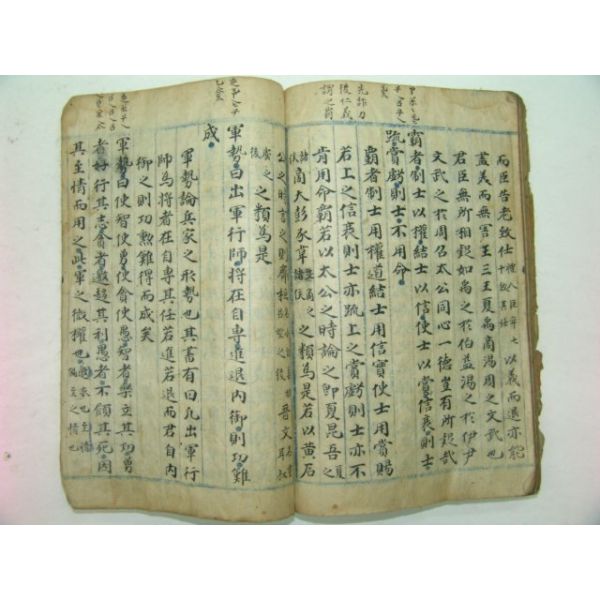 而臣告老致仕禮人臣年七十致其仕以義而退亦能
盡美而無害王三王夏禹商湯周之文武也
君臣無所相疑如禹之於伯益湯之於伊尹
文武之於周召太公同心一德豈有所疑哉
霸者制士以權結士以信使士以賞信衰則士
疏賞虧則士不用命
霸者制士用權道結士用信實使士用賞賜
若上之信衰則士亦疏上之賞虧則士亦不
肯用命霸若以太公之時論之卽夏昆吾夏
諸侯商大彭豕韋皆商之諸侯之類爲是若以黃石
先詐力
後仁義
謂之霸
公之時言之則齊桓晉文
之類爲是
軍勢曰出軍行師將在自專進退內御則功難
成
軍勢論兵家之形勢也其書有曰凡出軍行
師爲將者在自專其任若進若退而君自內
御之則功勲難得而成矣
軍勢曰使智使勇使貪使愚智者樂立其功勇
者好行其志貪者邀趨其利愚者不顧其死因
其至情而用之此軍之微權也